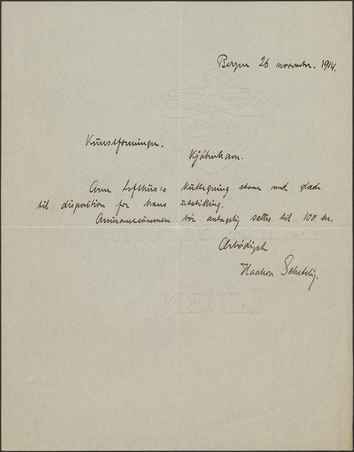 Bergen 26 november. 1914.
Kunstforeningen.
Kjøbenhavn.
Arne Lofthus's staar med glæde
til disposition for hans utstilling.
Assurancesummen bør antagelig settes til 100 kr.
Ærbødigst
Haakon Schetelig.